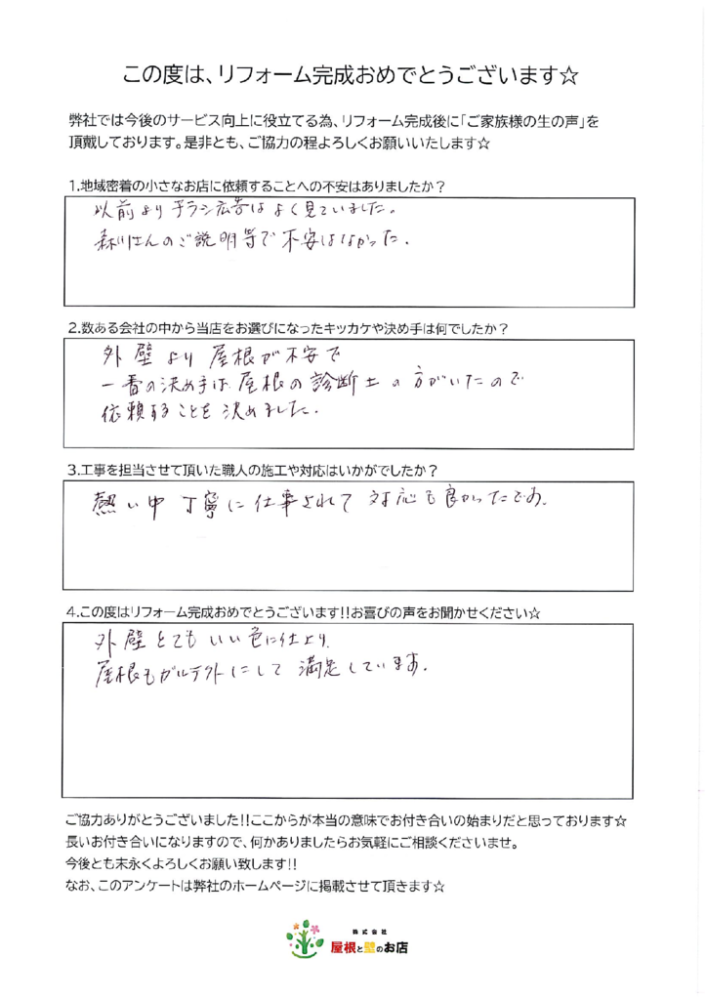 この度は、リフォーム完成おめでとうございます☆
弊社では今後のサービス向上に役立てる為、リフォーム完成後に「ご家族様の生の声」を
頂戴しております。是非とも、ご協力の程よろしくお願いいたします☆
1.地域密着の小さなお店に依頼することへの不安はありましたか？
以前よりチラシ広告はよく見ていました。
森川さんのご説明等で不安はなかった.
2.数ある会社の中から当店をお選びになったキッカケや決め手は何でしたか？
外壁より屋根が不安で
一番の決め手は屋根の診断士の方がいたので
依頼することを決めました.
3.工事を担当させて頂いた職人の施工や対応はいかがでしたか？
熱い中丁寧に仕事されて対応も良かったです.
4.この度はリフォーム完成おめでとうございます!!お喜びの声をお聞かせください☆
外壁とてもいい色に仕上り.
屋根もガルテクトにして満足しています.
ご協力ありがとうございました!!ここからが本当の意味でお付き合いの始まりだと思っております☆
長いお付き合いになりますので、何かありましたらお気軽にご相談くださいませ。
今後とも末永くよろしくお願い致します!!
なお、このアンケートは弊社のホームページに掲載させて頂きます☆
株式会社
屋根と壁のお店